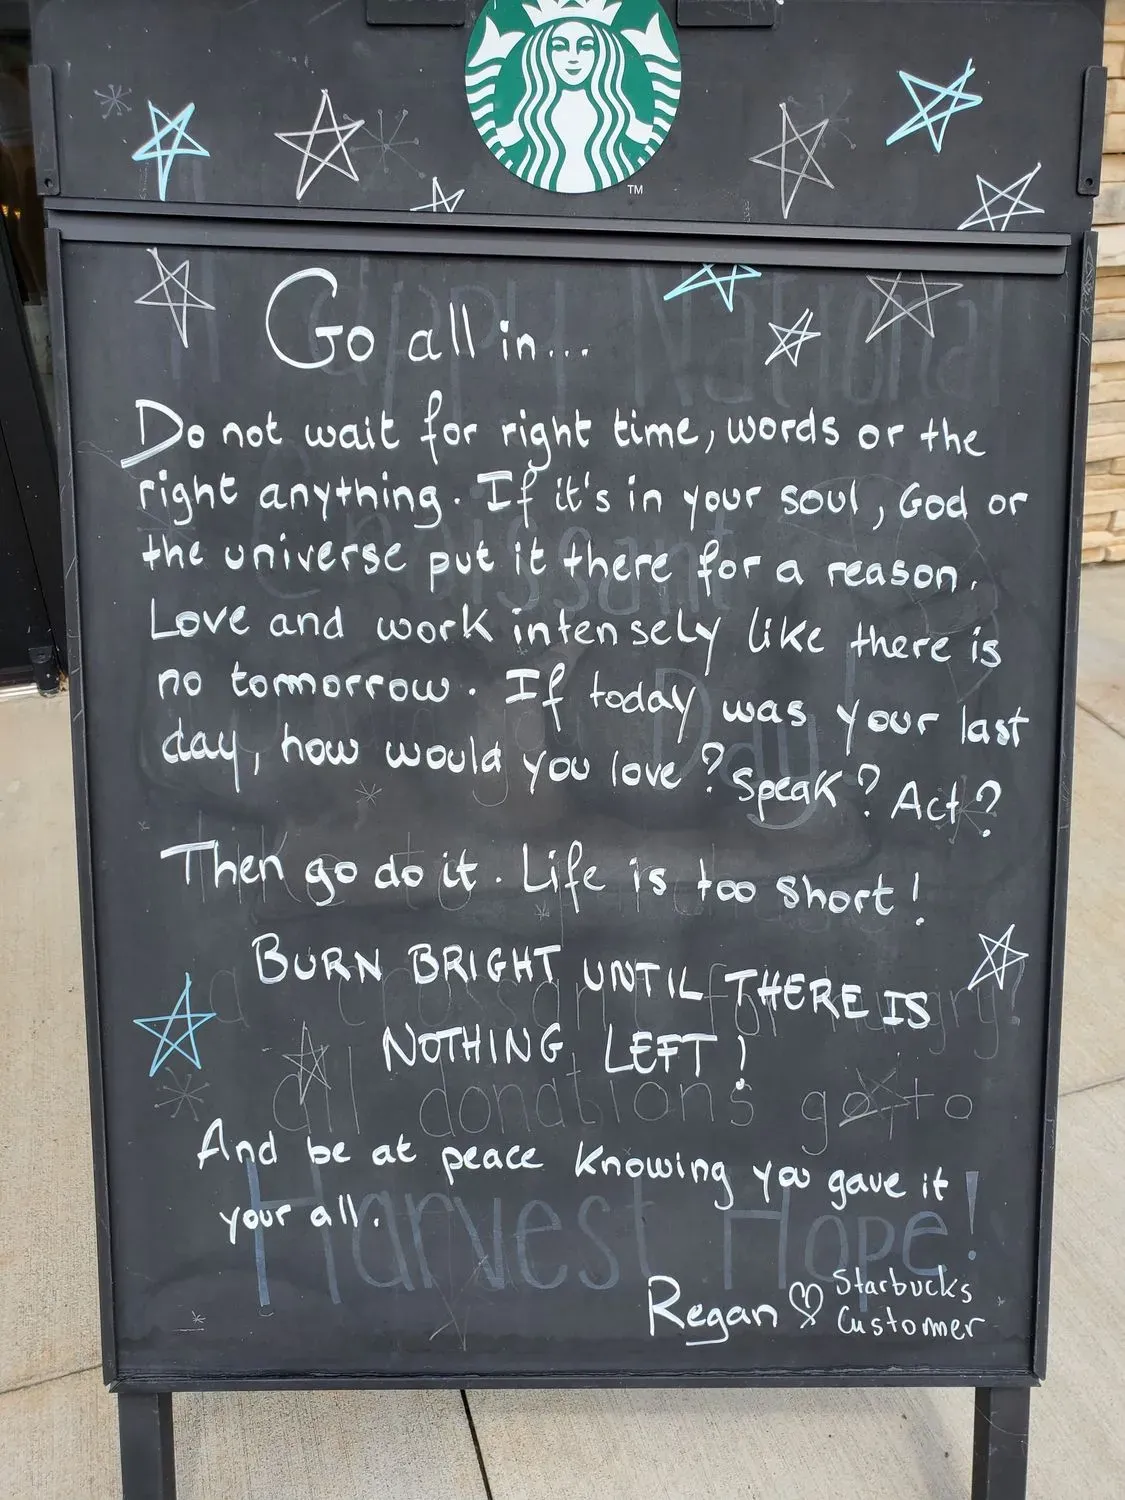 TM
Go all in...
Do not wait for right time, words or the
right anything. If it's in your soul, God or
the universe put it there for a reason.
Love and work intensely like there is
no tomorrow. If today was your last
day, how would you love? Speak? Act?
Then go do it. Life is too short!
BURN BRIGHT UNTIL THERE IS
NOTHING LEFT!
And be at peace knowing you gave it
your all.
Regan Starbucks
Customer
Happy National
Croissant
Day!
a croissant for hungry!
all donations go to
Harvest Hope!